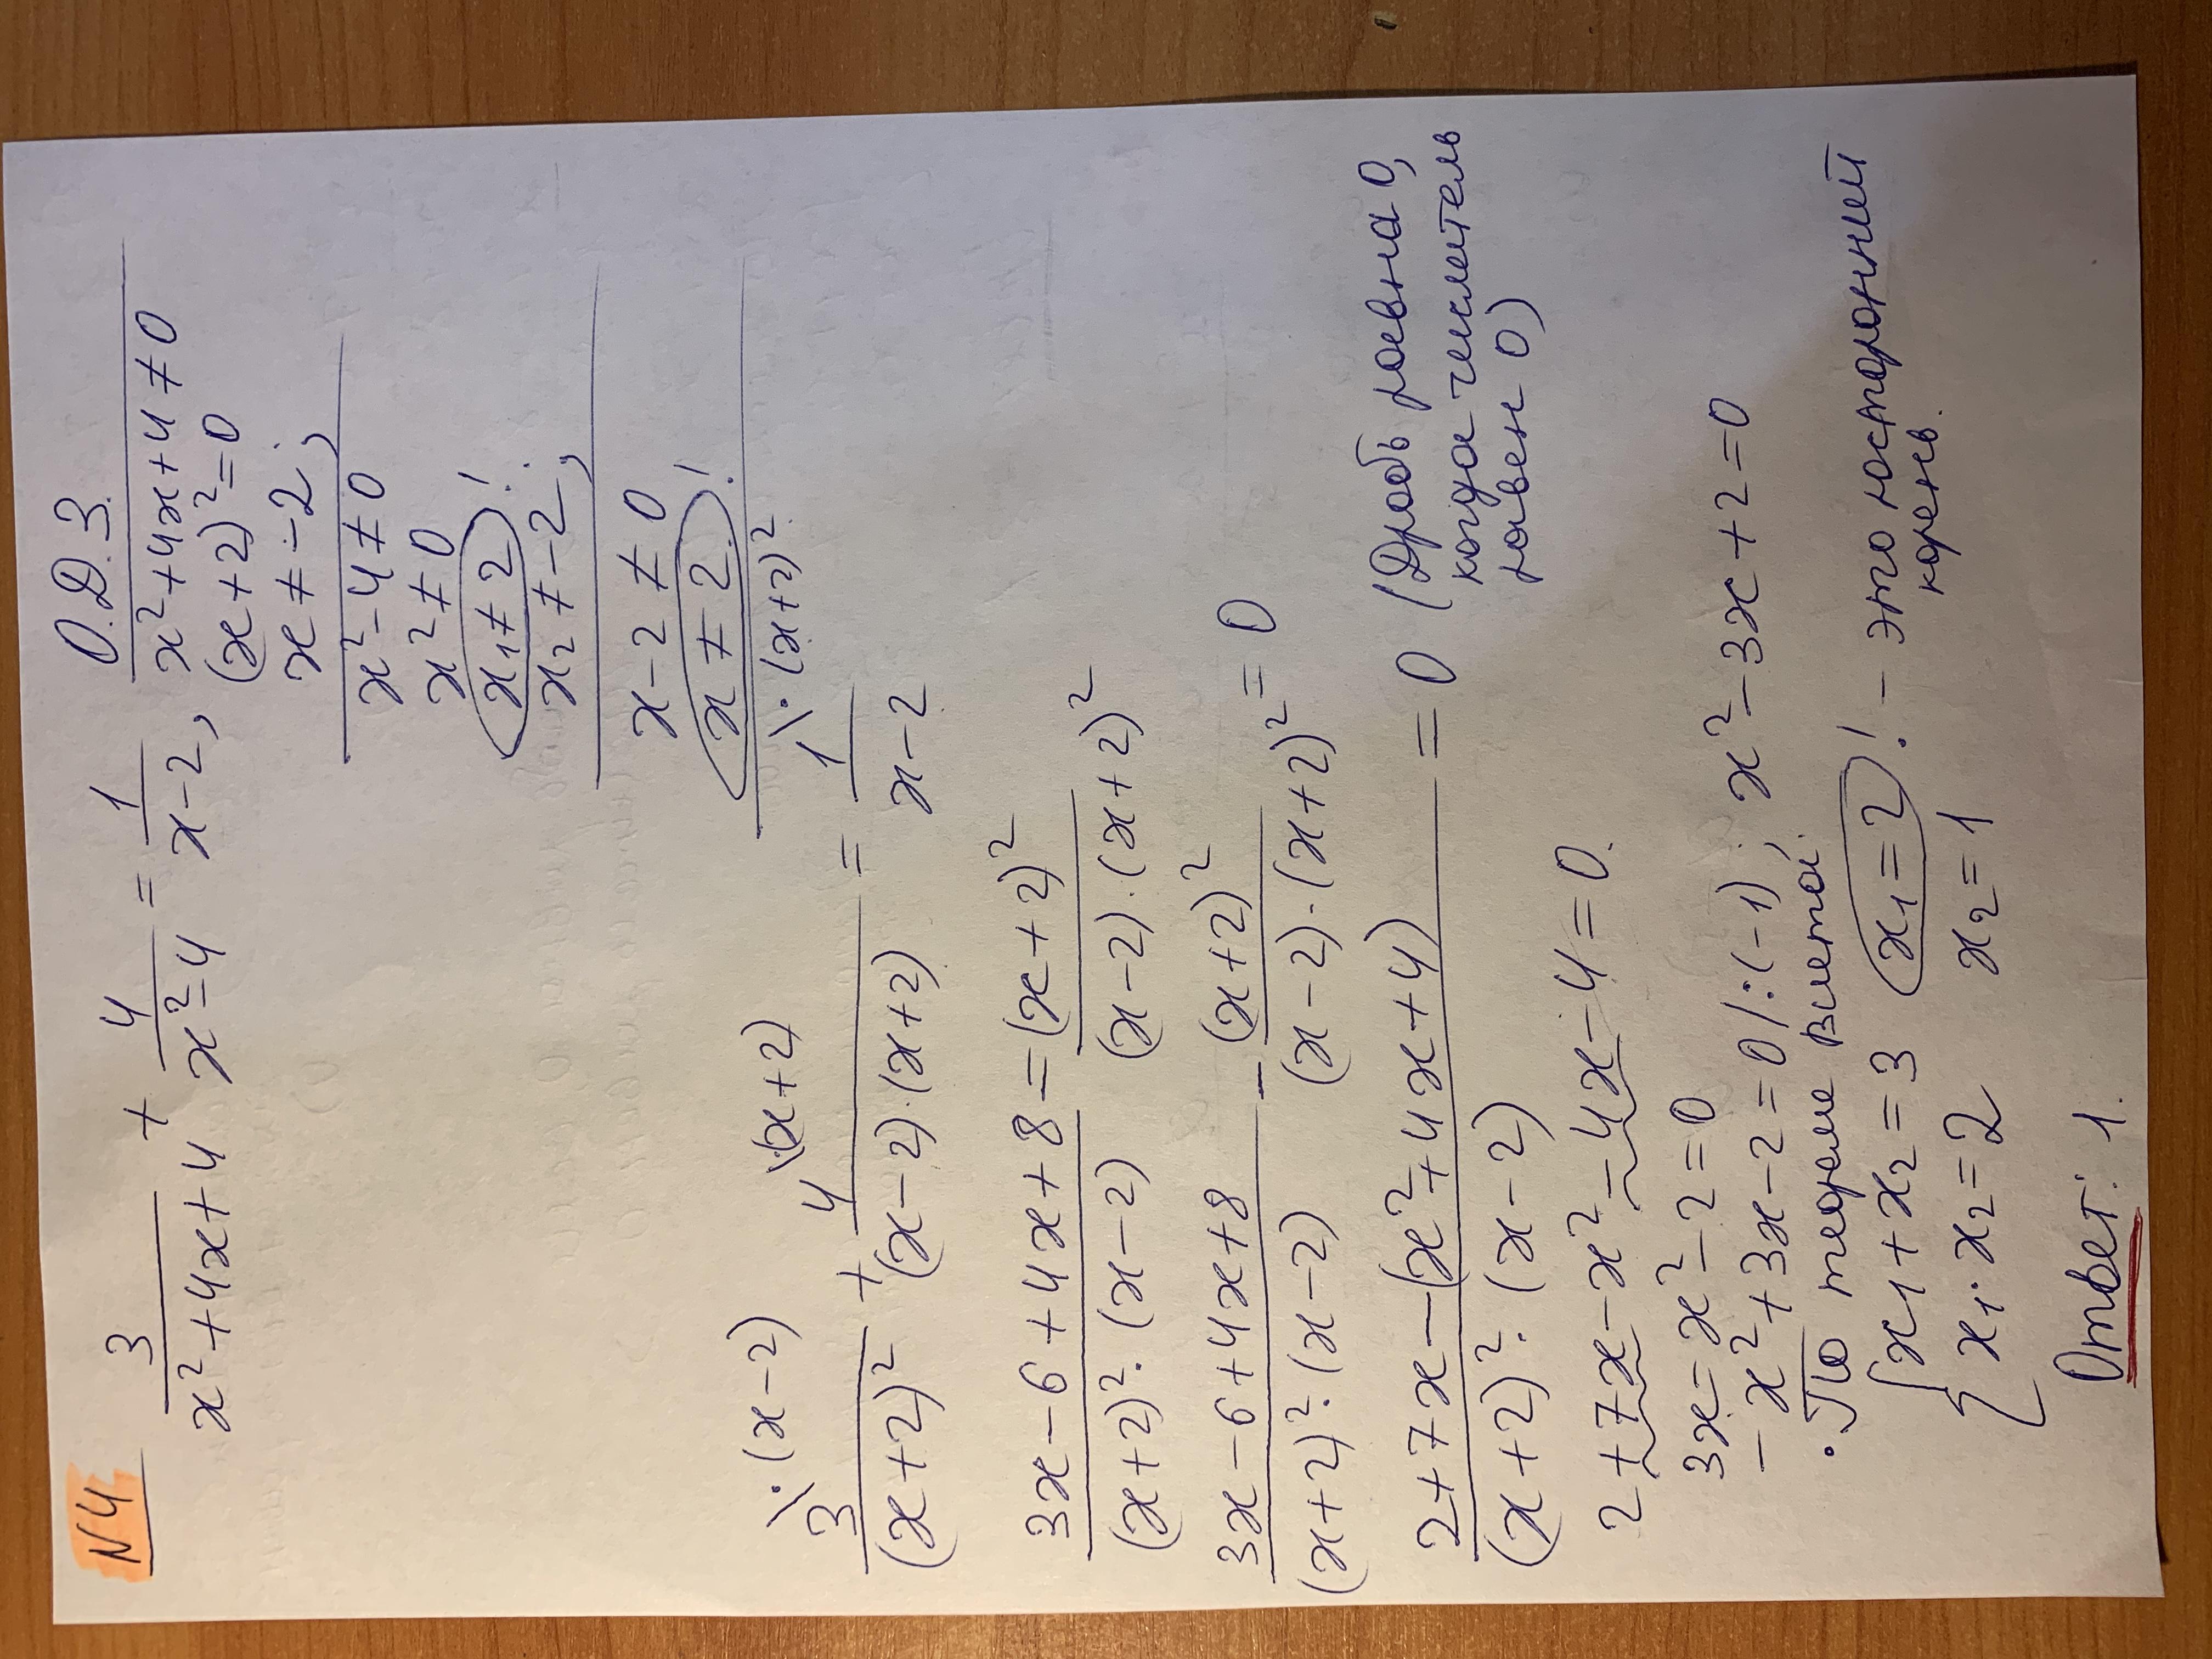 N4
3/(x²+4x+4) + 4/(x²-4) = 1/(x-2),
О.Д.З.
x²+4x+4≠0
(x+2)²=0
x≠-2;
x²-4≠0
x²≠0
x₁≠2!
x₂≠-2;
x-2≠0
x≠2!
3\·(x-2)/(x+2)² + 4\(x+2)/((x-2)·(x+2)) = 1\·(x+2)²/(x-2)
(3x-6+4x+8)/((x+2)²·(x-2)) = (x+2)²/((x-2)·(x+2)²)
(3x-6+4x+8)/((x+2)²·(x-2)) - (x+2)²/((x-2)·(x+2)²) = 0
(2+7x-(x²+4x+4))/((x+2)²·(x-2)) = 0 (Дробь равна 0,
когда числитель
равен 0)
2+7x-x²-4x-4=0.
3x=x²-2=0
-x²+3x-2=0/:(-1); x²-3x+2=0
·По теореме Виета:
{x₁+x₂=3 x₁=2! - это посторонний
корень.
x₁·x₂=2 x₂=1
Ответ: 1.